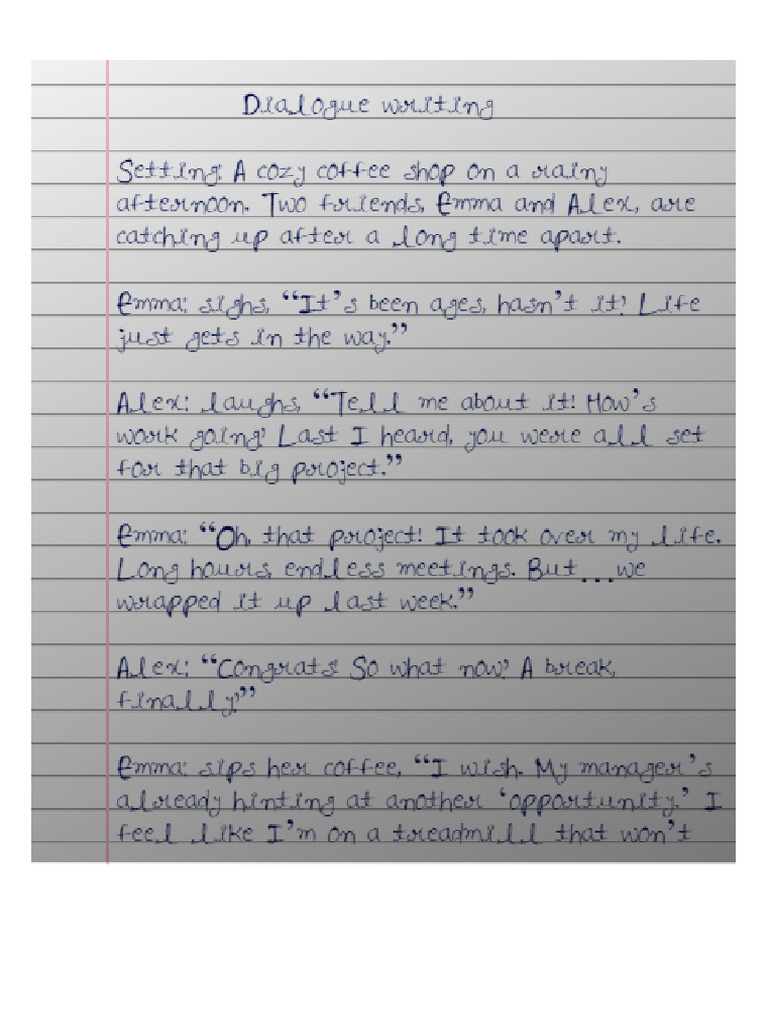 Dialogue writing
Setting: A cozy coffee shop on a rainy
afternoon. Two friends, Emma and Alex, are
catching up after a long time apart.
Emma: sighs, “It's been ages, hasn't it? Life
just gets in the way.”
Alex: laughs, “Tell me about it! How's
work going? Last I heard, you were all set
for that big project.”
Emma: “Oh, that project! It took over my life.
Long hours, endless meetings. But...we
wrapped it up last week.”
Alex: “Congrats! So what now? A break,
finally?”
Emma: sips her coffee, “I wish. My manager's
already hinting at another ‘opportunity.’ I
feel like I'm on a treadmill that won't